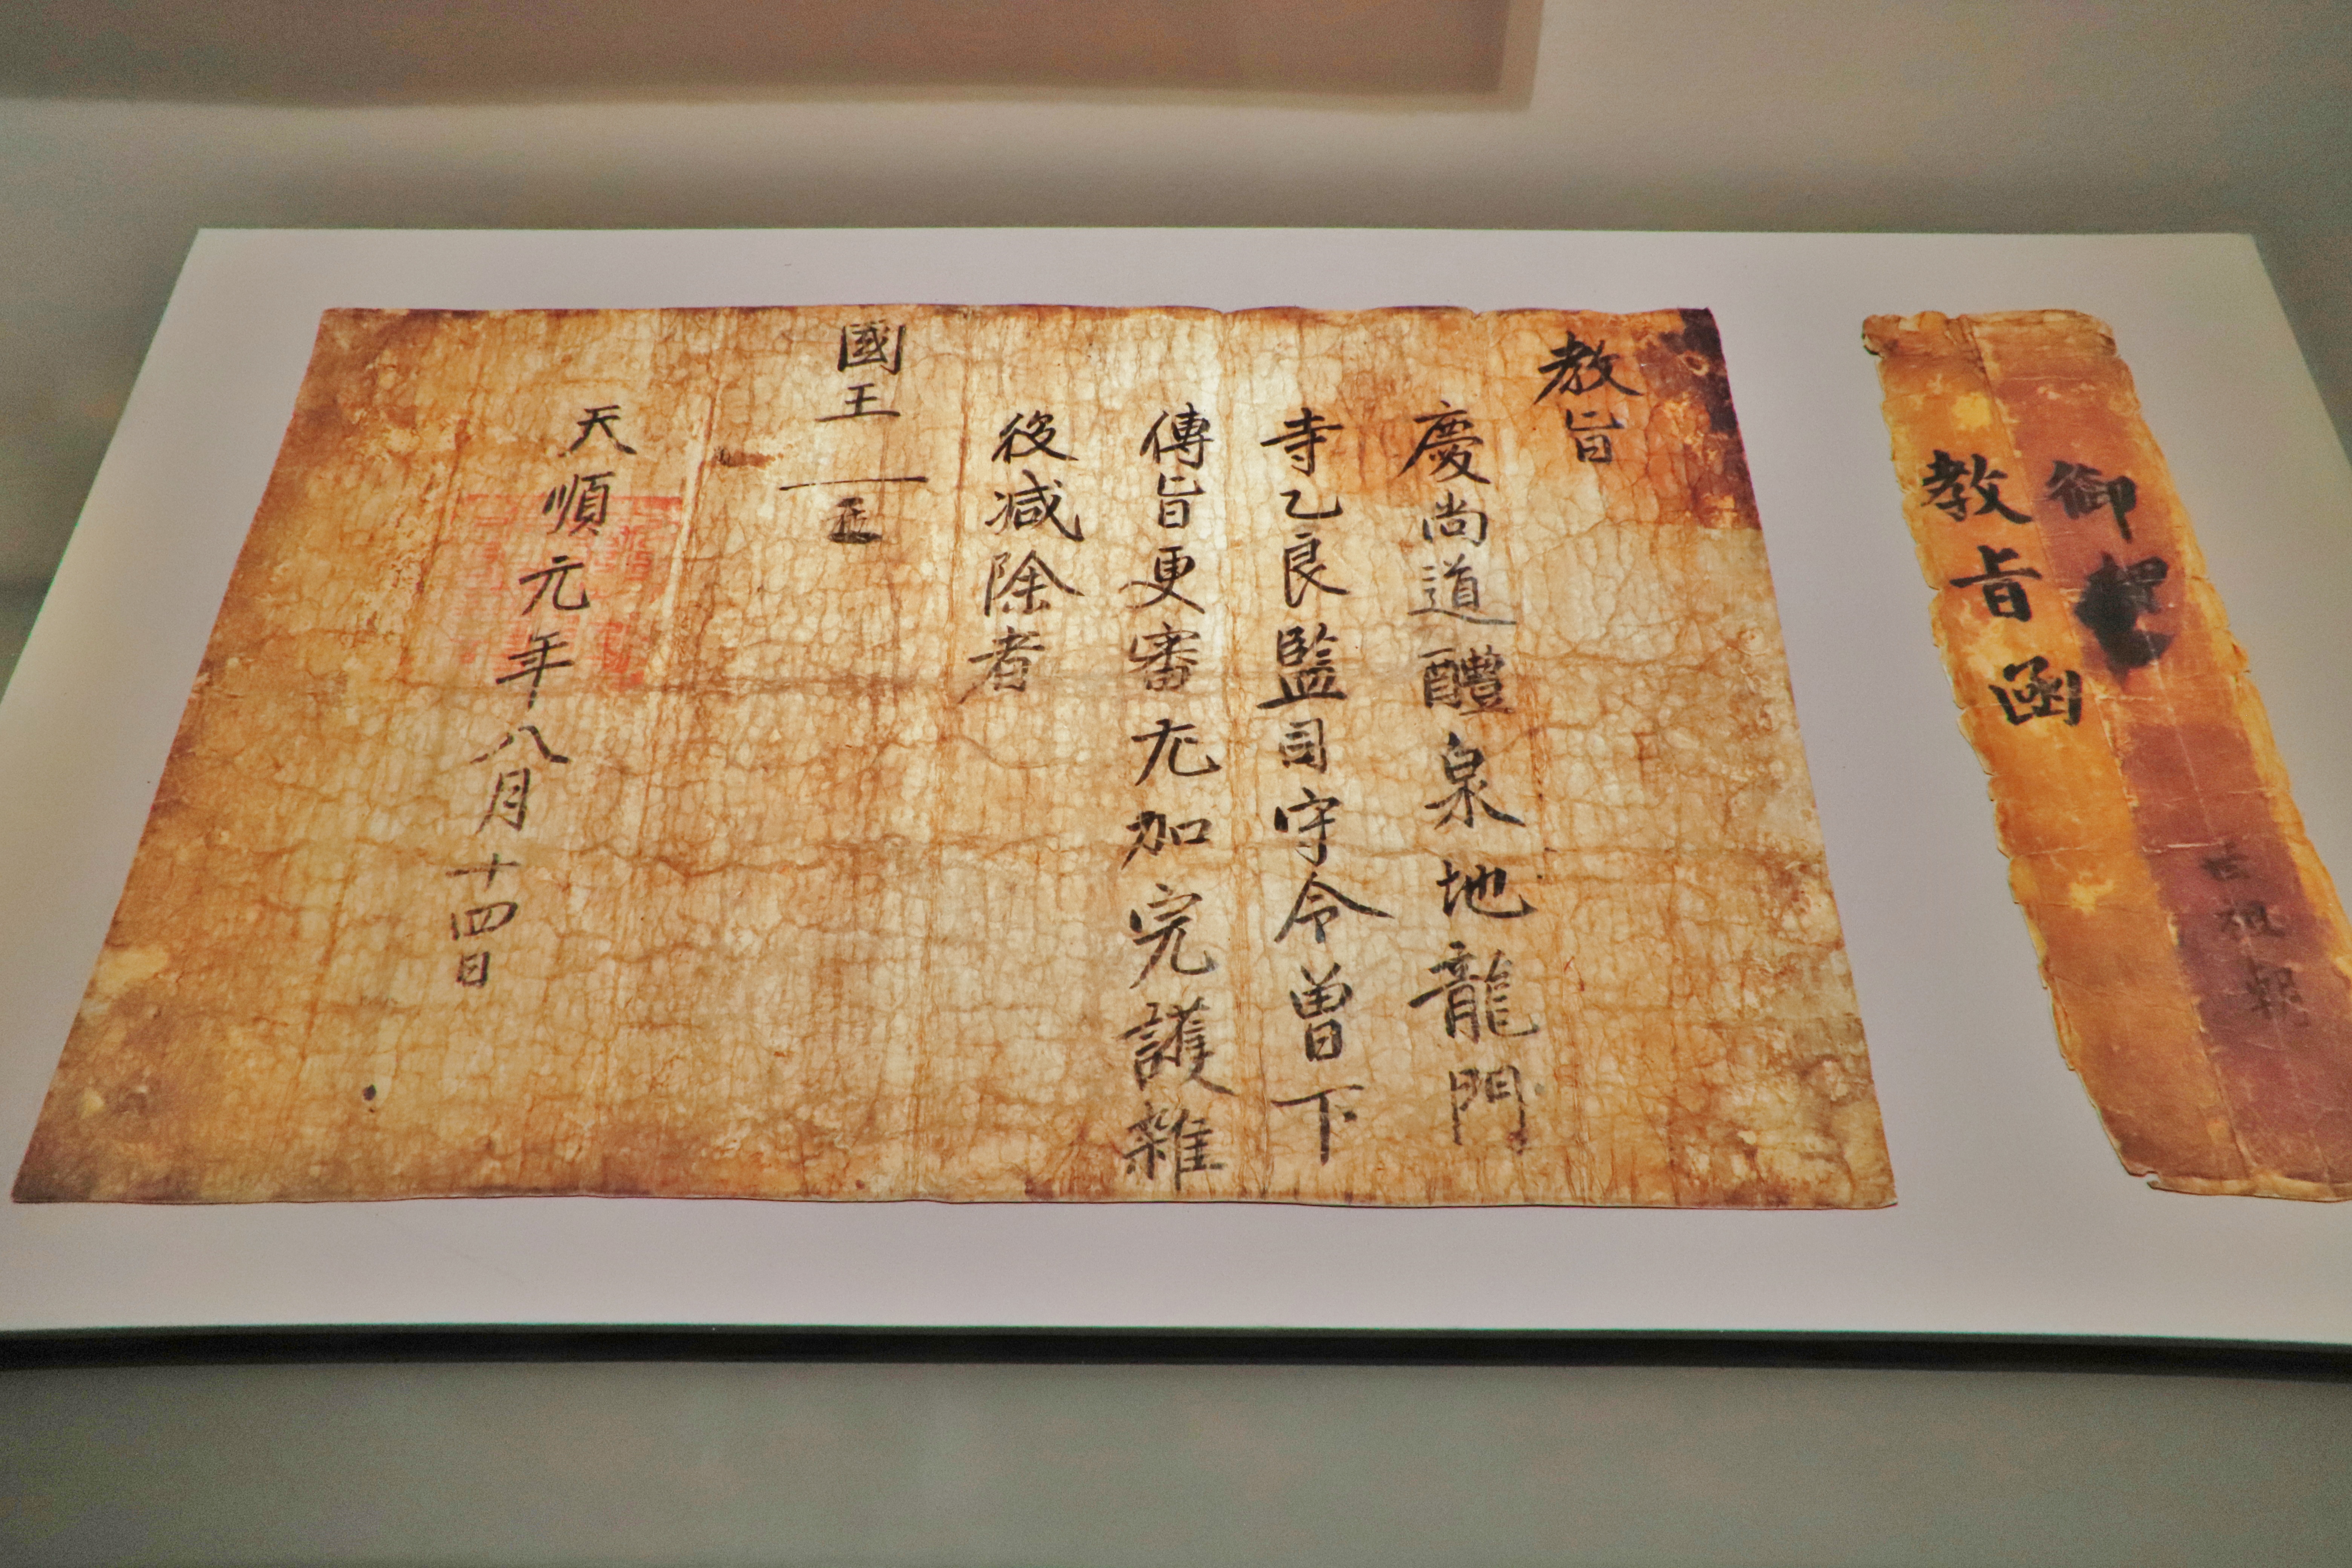 教旨
慶尚道醴泉地龍門
寺乙良監司守令曽下
傳旨更審尤加完護雜
役減除者
國王
天順元年八月十四日
御
教旨函
世祖朝